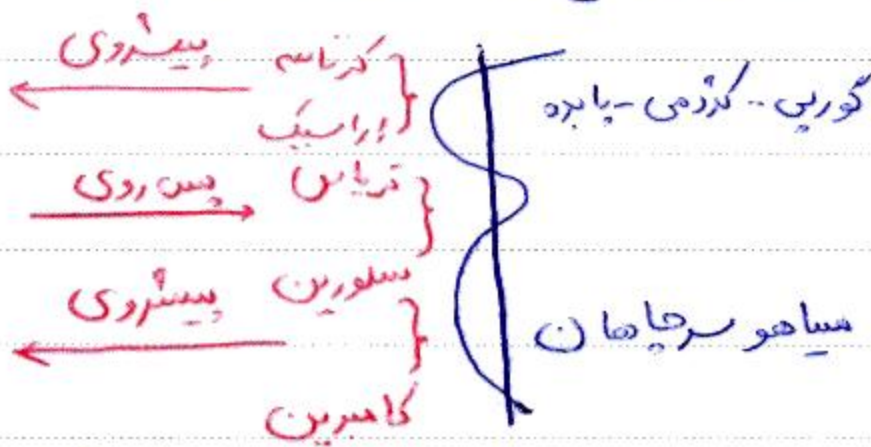 پیشروی
کرتاسه
ژوراسیک
گورپی - کژدمی - پابده
پس روی
تریاس
سلورین
پیشروی
سیاهو سرچاهان
کامبرین